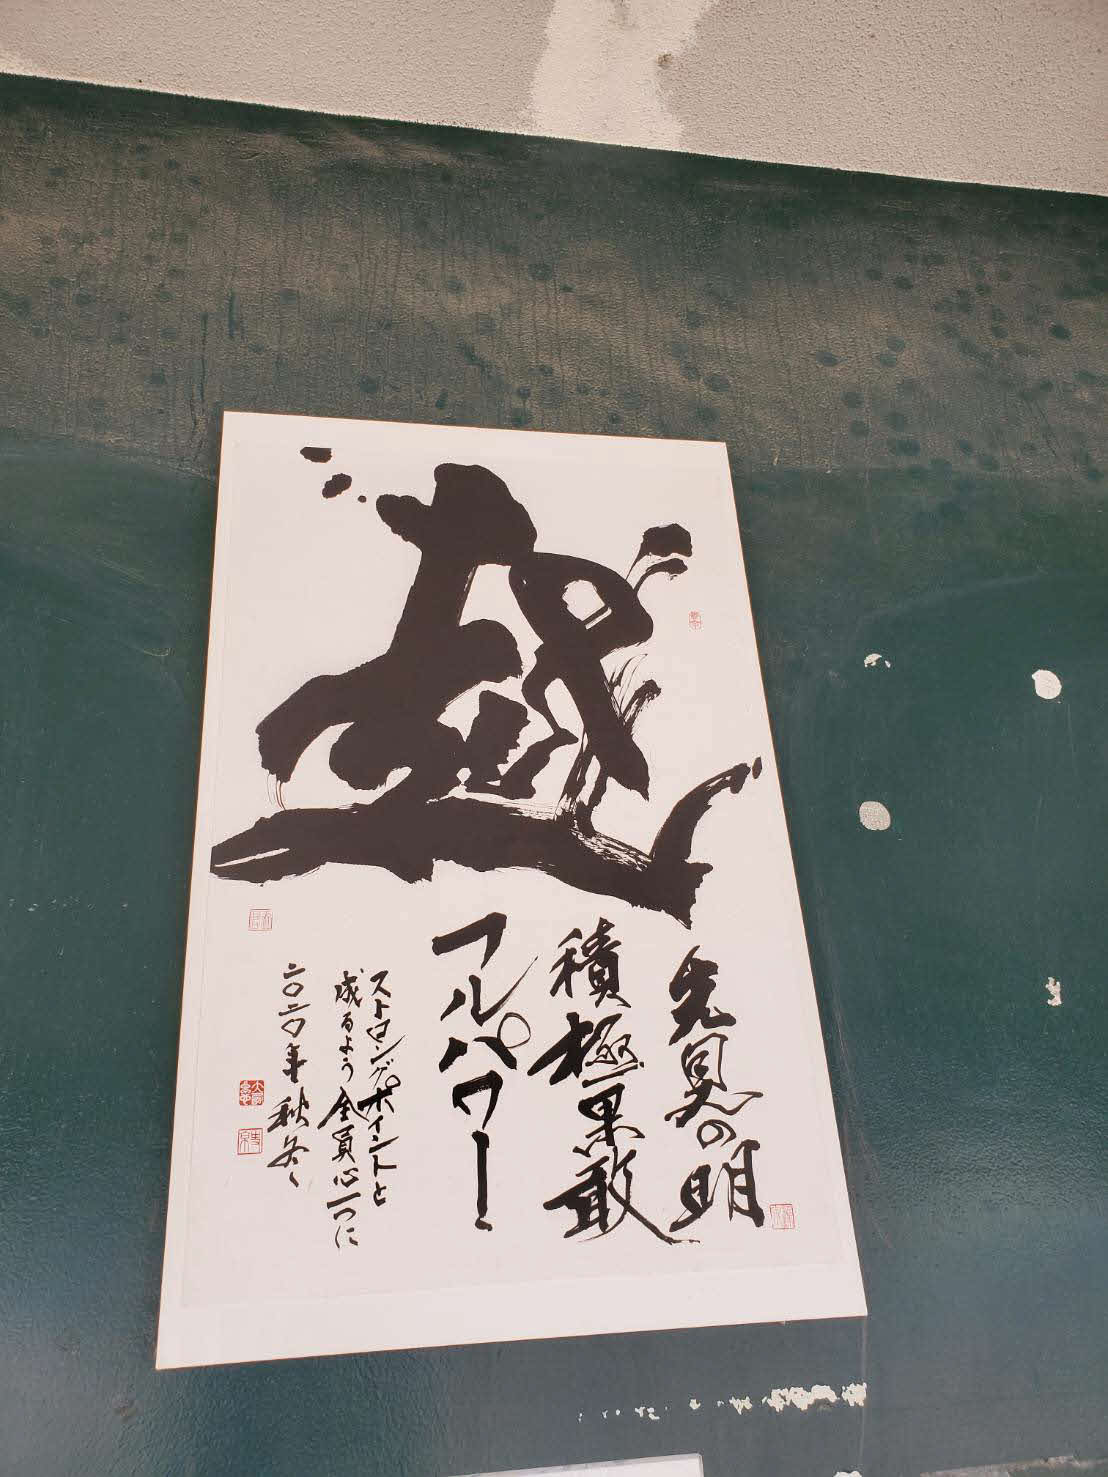 越
先見の明
積極果敢
フルパワー
ストロングポイントと
成るよう全員心一つに
二〇二〇年 秋冬